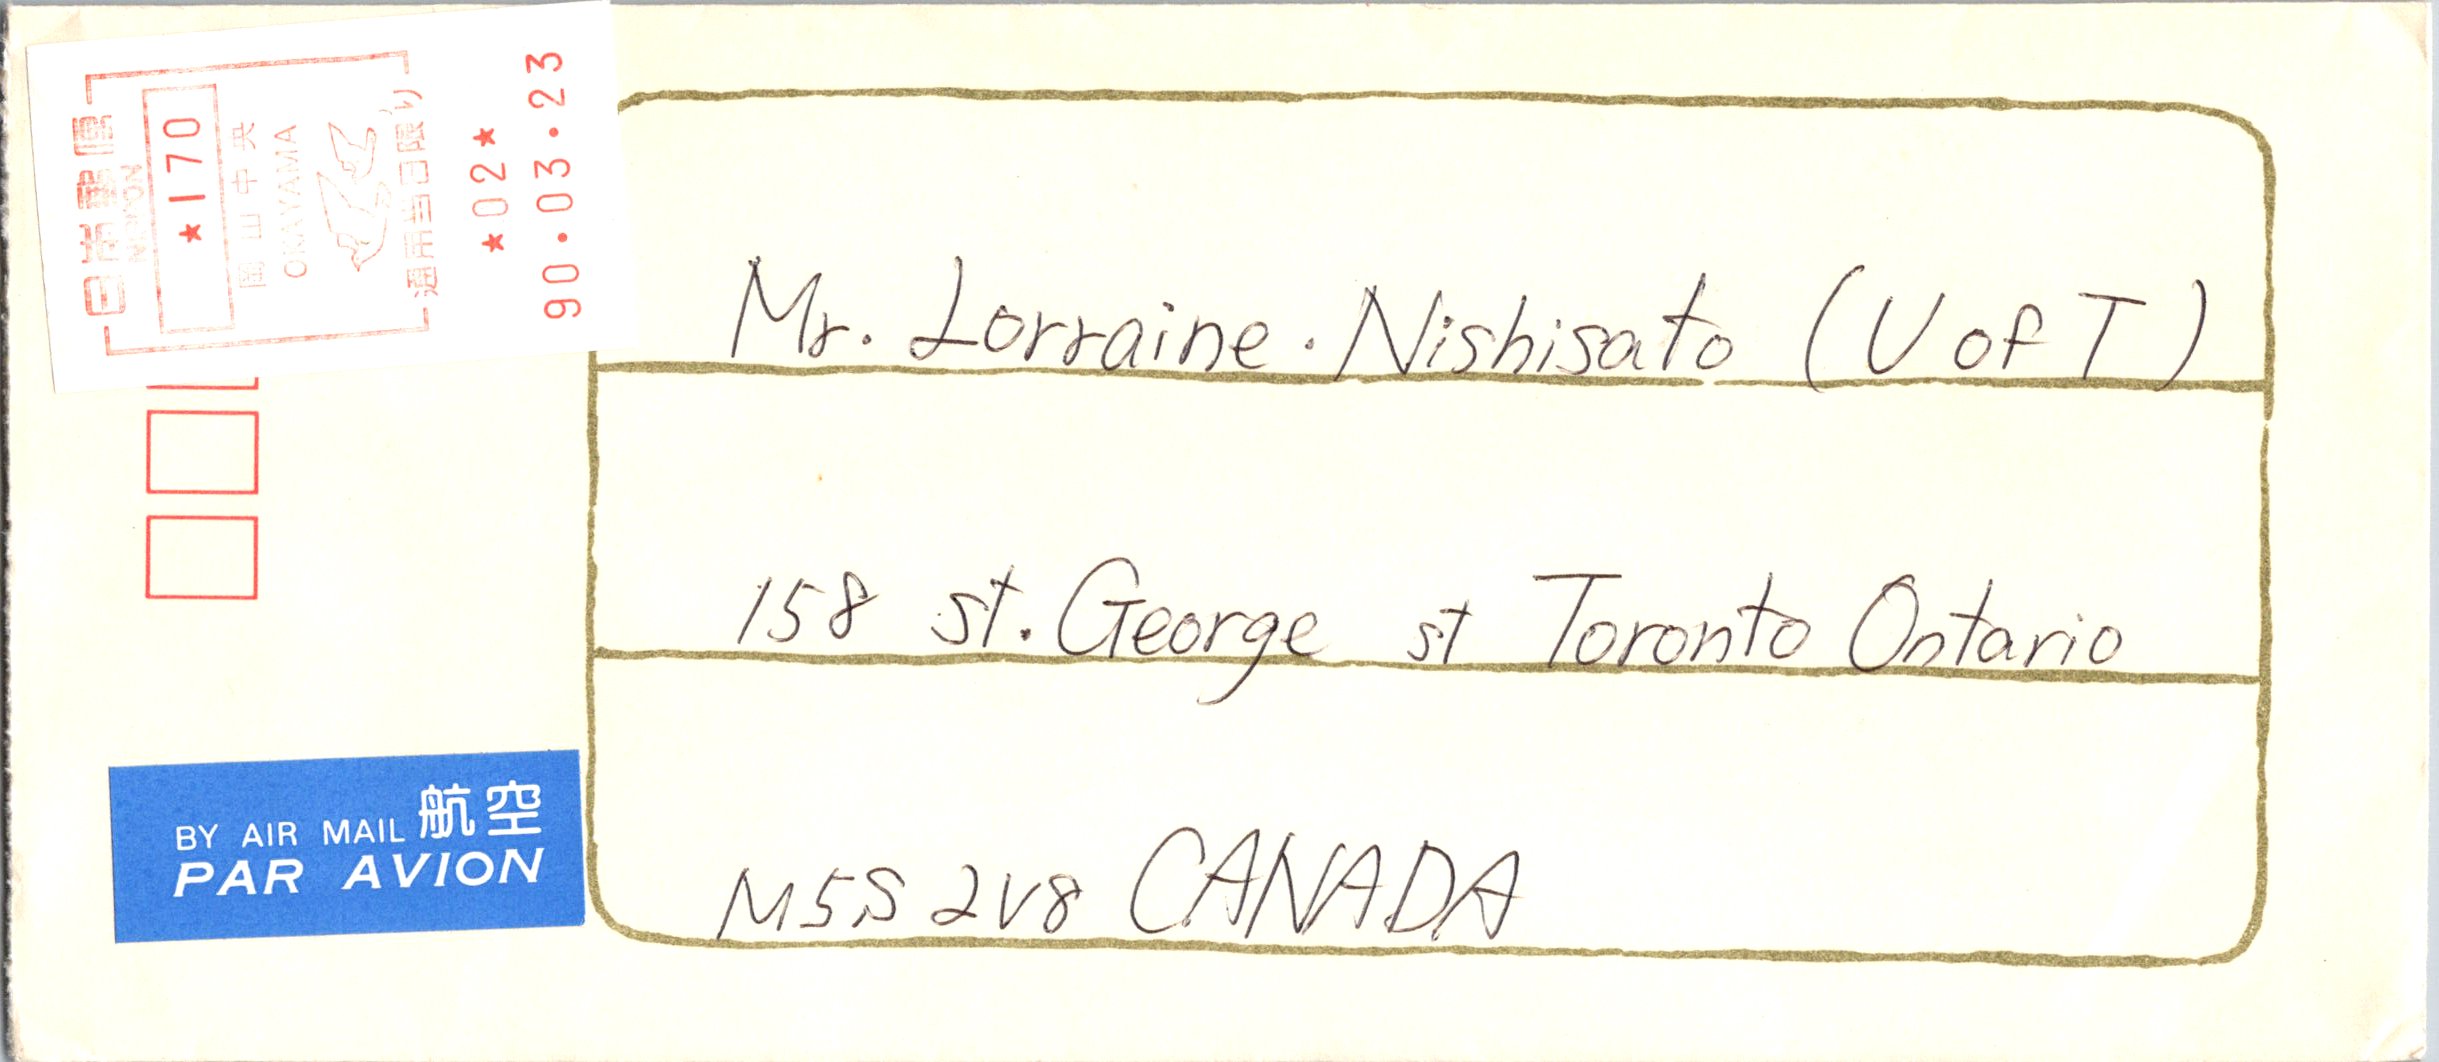 日本郵便
NIPPON
*170
岡山中央
OKAYAMA
通用当日限り
*02*
90.03.23
Mr. Lorraine・Nishisato (U of T)
158 st. George st Toronto Ontario
M5S 2V8 CANADA
BY AIR MAIL 航空
PAR AVION